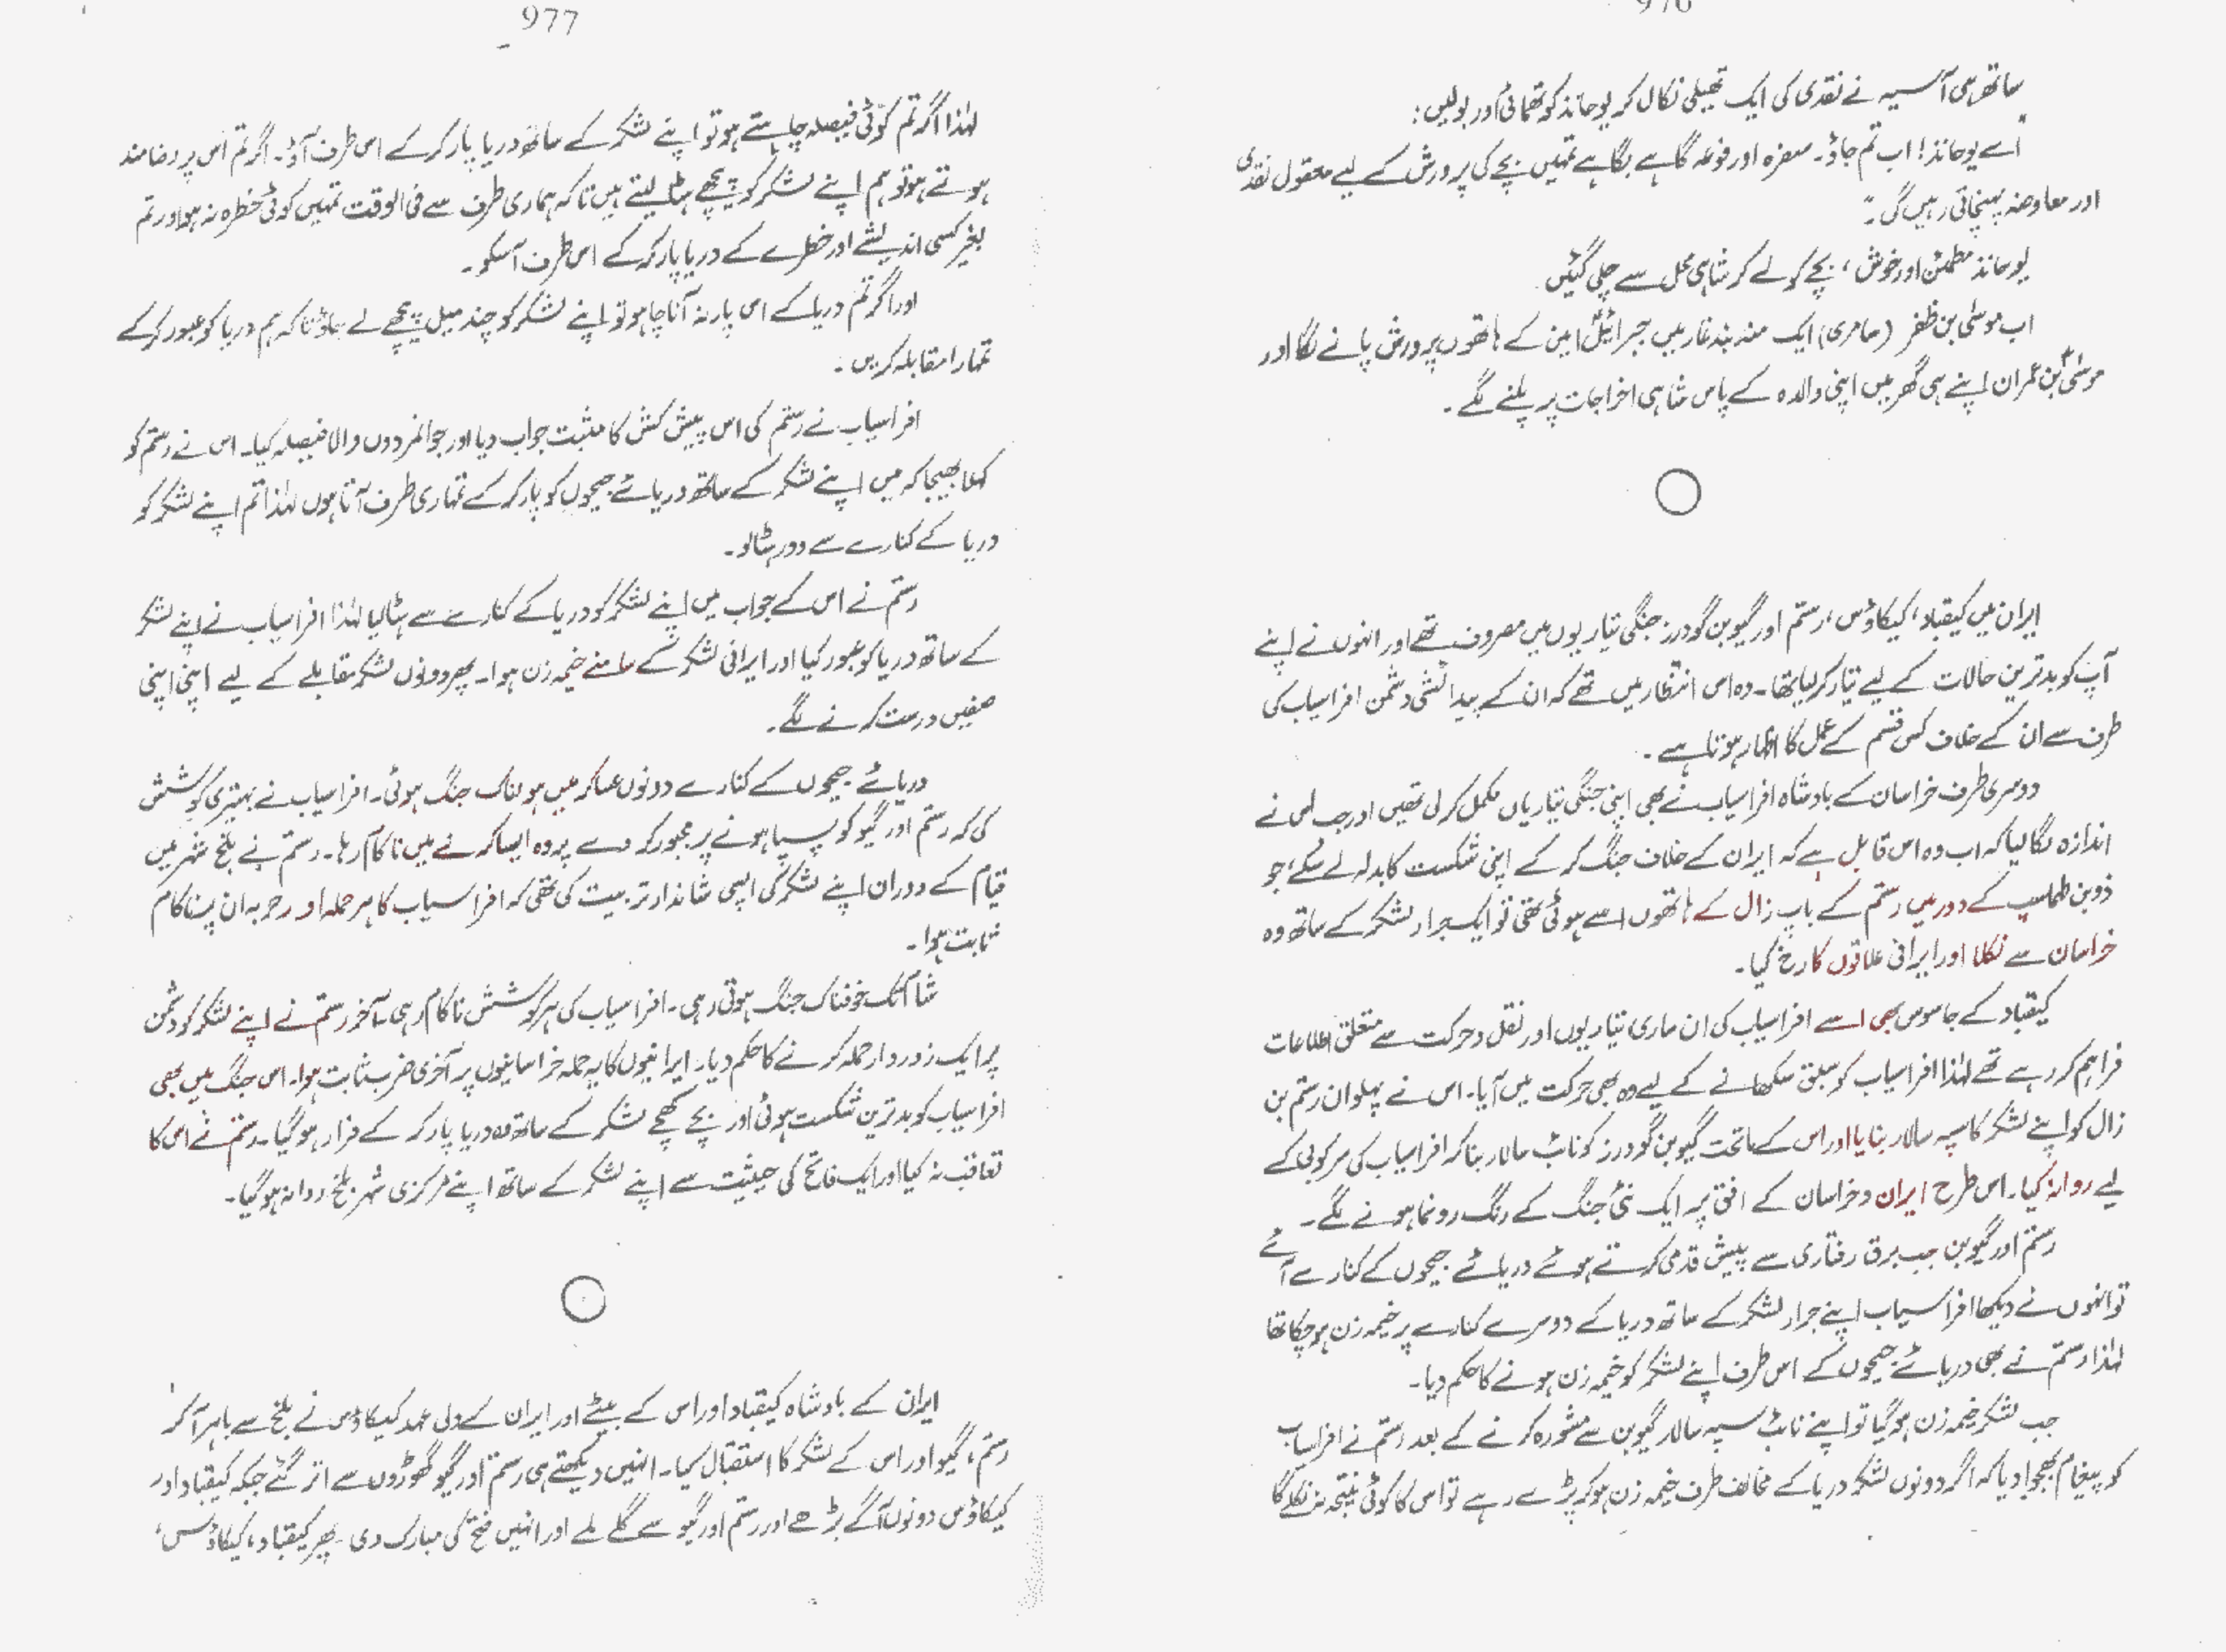 976
ساتھ ہی آسیہ نے نقدی کی ایک تھیلی نکال کر یوحانذ کو تھمائی اور بولیں:
اے یوحانذ! اب تم جاؤ۔ سعزہ اور فوعہ گاہے بگاہے تمہیں بچے کی پرورش کے لیے معقول نقدی
اور معاوضہ پہنچاتی رہیں گی۔"
یوحانذ مطمئن اور خوش، بچے کو لے کر شاہی محل سے چلی گئیں۔
اب موسیٰ بن ظفر (سامری) ایک منہ بند غار میں جبرائیلؑ امین کے ہاتھوں پرورش پانے لگا اور
موسیٰؑ بن عمران اپنے ہی گھر میں اپنی والدہ کے پاس شاہی اخراجات پر پلنے لگے۔
ایران میں کیقباد، کیکاؤس، رستم اور گیو بن گودرز جنگی تیاریوں میں مصروف تھے اور انہوں نے اپنے
آپ کو بدترین حالات کے لیے تیار کر لیا تھا۔ وہ اس انتظار میں تھے کہ ان کے پیدائشی دشمن افراسیاب کی
طرف سے ان کے خلاف کس قسم کے عمل کا اظہار ہوتا ہے۔
دوسری طرف خراسان کے بادشاہ افراسیاب نے بھی اپنی جنگی تیاریاں مکمل کر لی تھیں اور جب اس نے
اندازہ لگا لیا کہ اب وہ اس قابل ہے کہ ایران کے خلاف جنگ کر کے اپنی شکست کا بدلہ لے سکے، جو
ذوبن طہماسپ کے دور میں رستم کے باپ زال کے ہاتھوں اسے ہوئی تھی تو ایک جرار لشکر کے ساتھ وہ
خراسان سے نکلا اور ایرانی علاقوں کا رخ کیا۔
کیقباد کے جاسوس بھی اسے افراسیاب کی ان ساری تیاریوں اور نقل و حرکت سے متعلق اطلاعات
فراہم کر رہے تھے لہٰذا افراسیاب کو سبق سکھانے کے لیے وہ بھی حرکت میں آیا۔ اس نے پہلوان رستم بن
زال کو اپنے لشکر کا سپہ سالار بنایا اور اس کے ماتحت گیو بن گودرز کو نائب سالار بنا کر افراسیاب کی سرکوبی کے
لیے روانہ کیا۔ اس طرح ایران و خراسان کے افق پر ایک نئی جنگ کے رنگ رونما ہونے لگے۔
رستم اور گیوبن جب برق رفتاری سے پیش قدمی کرتے ہوئے دریائے جیحوں کے کنارے آئے
تو انہوں نے دیکھا افراسیاب اپنے جرار لشکر کے ساتھ دریا کے دوسرے کنارے پر خیمہ زن ہو چکا تھا
لہٰذا رستم نے بھی دریائے جیحوں کے اس طرف اپنے لشکر کو خیمہ زن ہونے کا حکم دیا۔
جب لشکر خیمہ زن ہو گیا تو اپنے نائب سپہ سالار گیوبن سے مشورہ کرنے کے بعد رستم نے افراسیاب
کو پیغام بھجوا دیا کہ اگر دونوں لشکر دریا کے مخالف طرف خیمہ زن ہو کر پڑے رہے تو اس کا کوئی نتیجہ نہ نکلے گا
977
لہٰذا اگر تم کوئی فیصلہ چاہتے ہو تو اپنے لشکر کے ساتھ دریا پار کر کے اس طرف آؤ۔ اگر تم اس پر رضامند
ہوتے ہو تو ہم اپنے لشکر کو پیچھے ہٹا لیتے ہیں تاکہ ہماری طرف سے فی الوقت تمہیں کوئی خطرہ نہ ہو اور تم
بغیر کسی اندیشے اور خطرے کے دریا پار کر کے اس طرف آ سکو۔
اور اگر تم دریا کے اس پار نہ آنا چاہو تو اپنے لشکر کو چند میل پیچھے لے جاؤ تاکہ ہم دریا کو عبور کر کے
تمہارا مقابلہ کریں۔
افراسیاب نے رستم کی اس پیش کش کا مثبت جواب دیا اور جوانمردوں والا فیصلہ کیا۔ اس نے رستم کو
کہلا بھیجا کہ میں اپنے لشکر کے ساتھ دریائے جیحوں کو پار کر کے تمہاری طرف آتا ہوں لہٰذا تم اپنے لشکر کو
دریا کے کنارے سے دور ہٹا لو۔
رستم نے اس کے جواب میں اپنے لشکر کو دریا کے کنارے سے ہٹا لیا لہٰذا افراسیاب نے اپنے لشکر
کے ساتھ دریا کو عبور کیا اور ایرانی لشکر کے سامنے خیمہ زن ہوا۔ پھر دونوں لشکر مقابلے کے لیے اپنی اپنی
صفیں درست کرنے لگے۔
دریائے جیحوں کے کنارے دونوں عساکر میں ہولناک جنگ ہوئی۔ افراسیاب نے بہتیری کوشش
کی کہ رستم اور گیو کو پسپا ہونے پر مجبور کر دے پر وہ ایسا کرنے میں ناکام رہا۔ رستم نے بلخ شہر میں
قیام کے دوران اپنے لشکر کی ایسی شاندار تربیت کی تھی کہ افراسیاب کا ہر حملہ اور ہر حربہ ان پر ناکام
ثابت ہوا۔
شام تک خوفناک جنگ ہوتی رہی۔ افراسیاب کی ہر کوشش ناکام رہی۔ آخر رستم نے اپنے لشکر کو دشمن
پر ایک زوردار حملہ کرنے کا حکم دیا۔ ایرانیوں کا یہ حملہ خراسانیوں پر آخری ضرب ثابت ہوا۔ اس جنگ میں بھی
افراسیاب کو بدترین شکست ہوئی اور بچے کھچے لشکر کے ساتھ وہ دریا پار کر کے فرار ہو گیا۔ رستم نے اس کا
تعاقب نہ کیا اور ایک فاتح کی حیثیت سے اپنے لشکر کے ساتھ اپنے مرکزی شہر بلخ روانہ ہو گیا۔
ایران کے بادشاہ کیقباد اور اس کے بیٹے اور ایران کے ولی عہد کیکاؤس نے بلخ سے باہر آ کر
رستم، گیو اور اس کے لشکر کا استقبال کیا۔ انہیں دیکھتے ہی رستم اور گیو گھوڑوں سے اتر گئے جبکہ کیقباد اور
کیکاؤس دونوں آگے بڑھے اور رستم اور گیو سے گلے ملے اور انہیں فتح کی مبارک دی۔ پھر کیقباد، کیکاؤس،